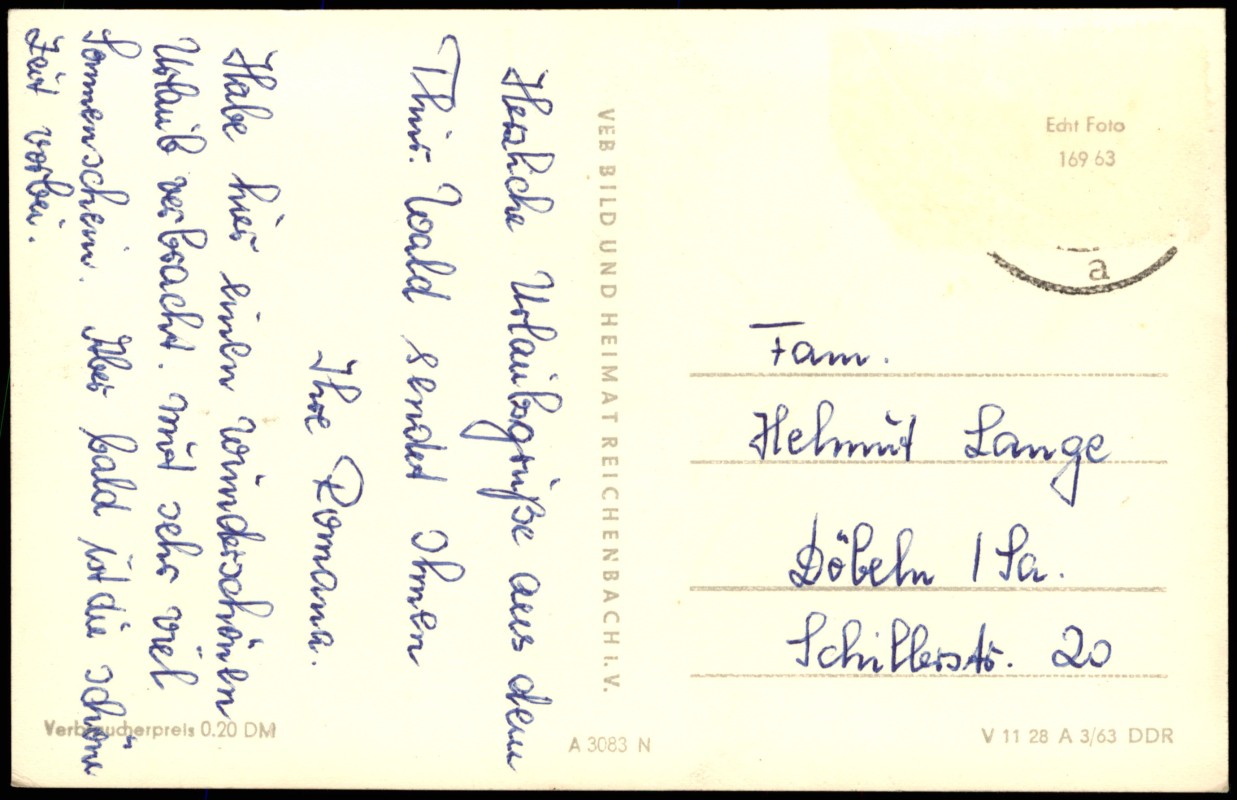 Herzliche Urlaubsgrüße aus dem
Thür. Wald sendet Ihnen
Ihre Romana.
Habe hier einen wunderschönen
Urlaub verbracht. mit sehr viel
Sonnenschein. Aber bald ist die schöne
Zeit vorbei.
VEB BILD UND HEIMAT REICHENBACH i. V.
Echt Foto
169 63
a
Fam.
Helmut Lange
Döbeln / Sa.
Schillerstr. 20
Verbraucherpreis 0.20 DM
A 3083 N
V 11 28 A 3/63 DDR